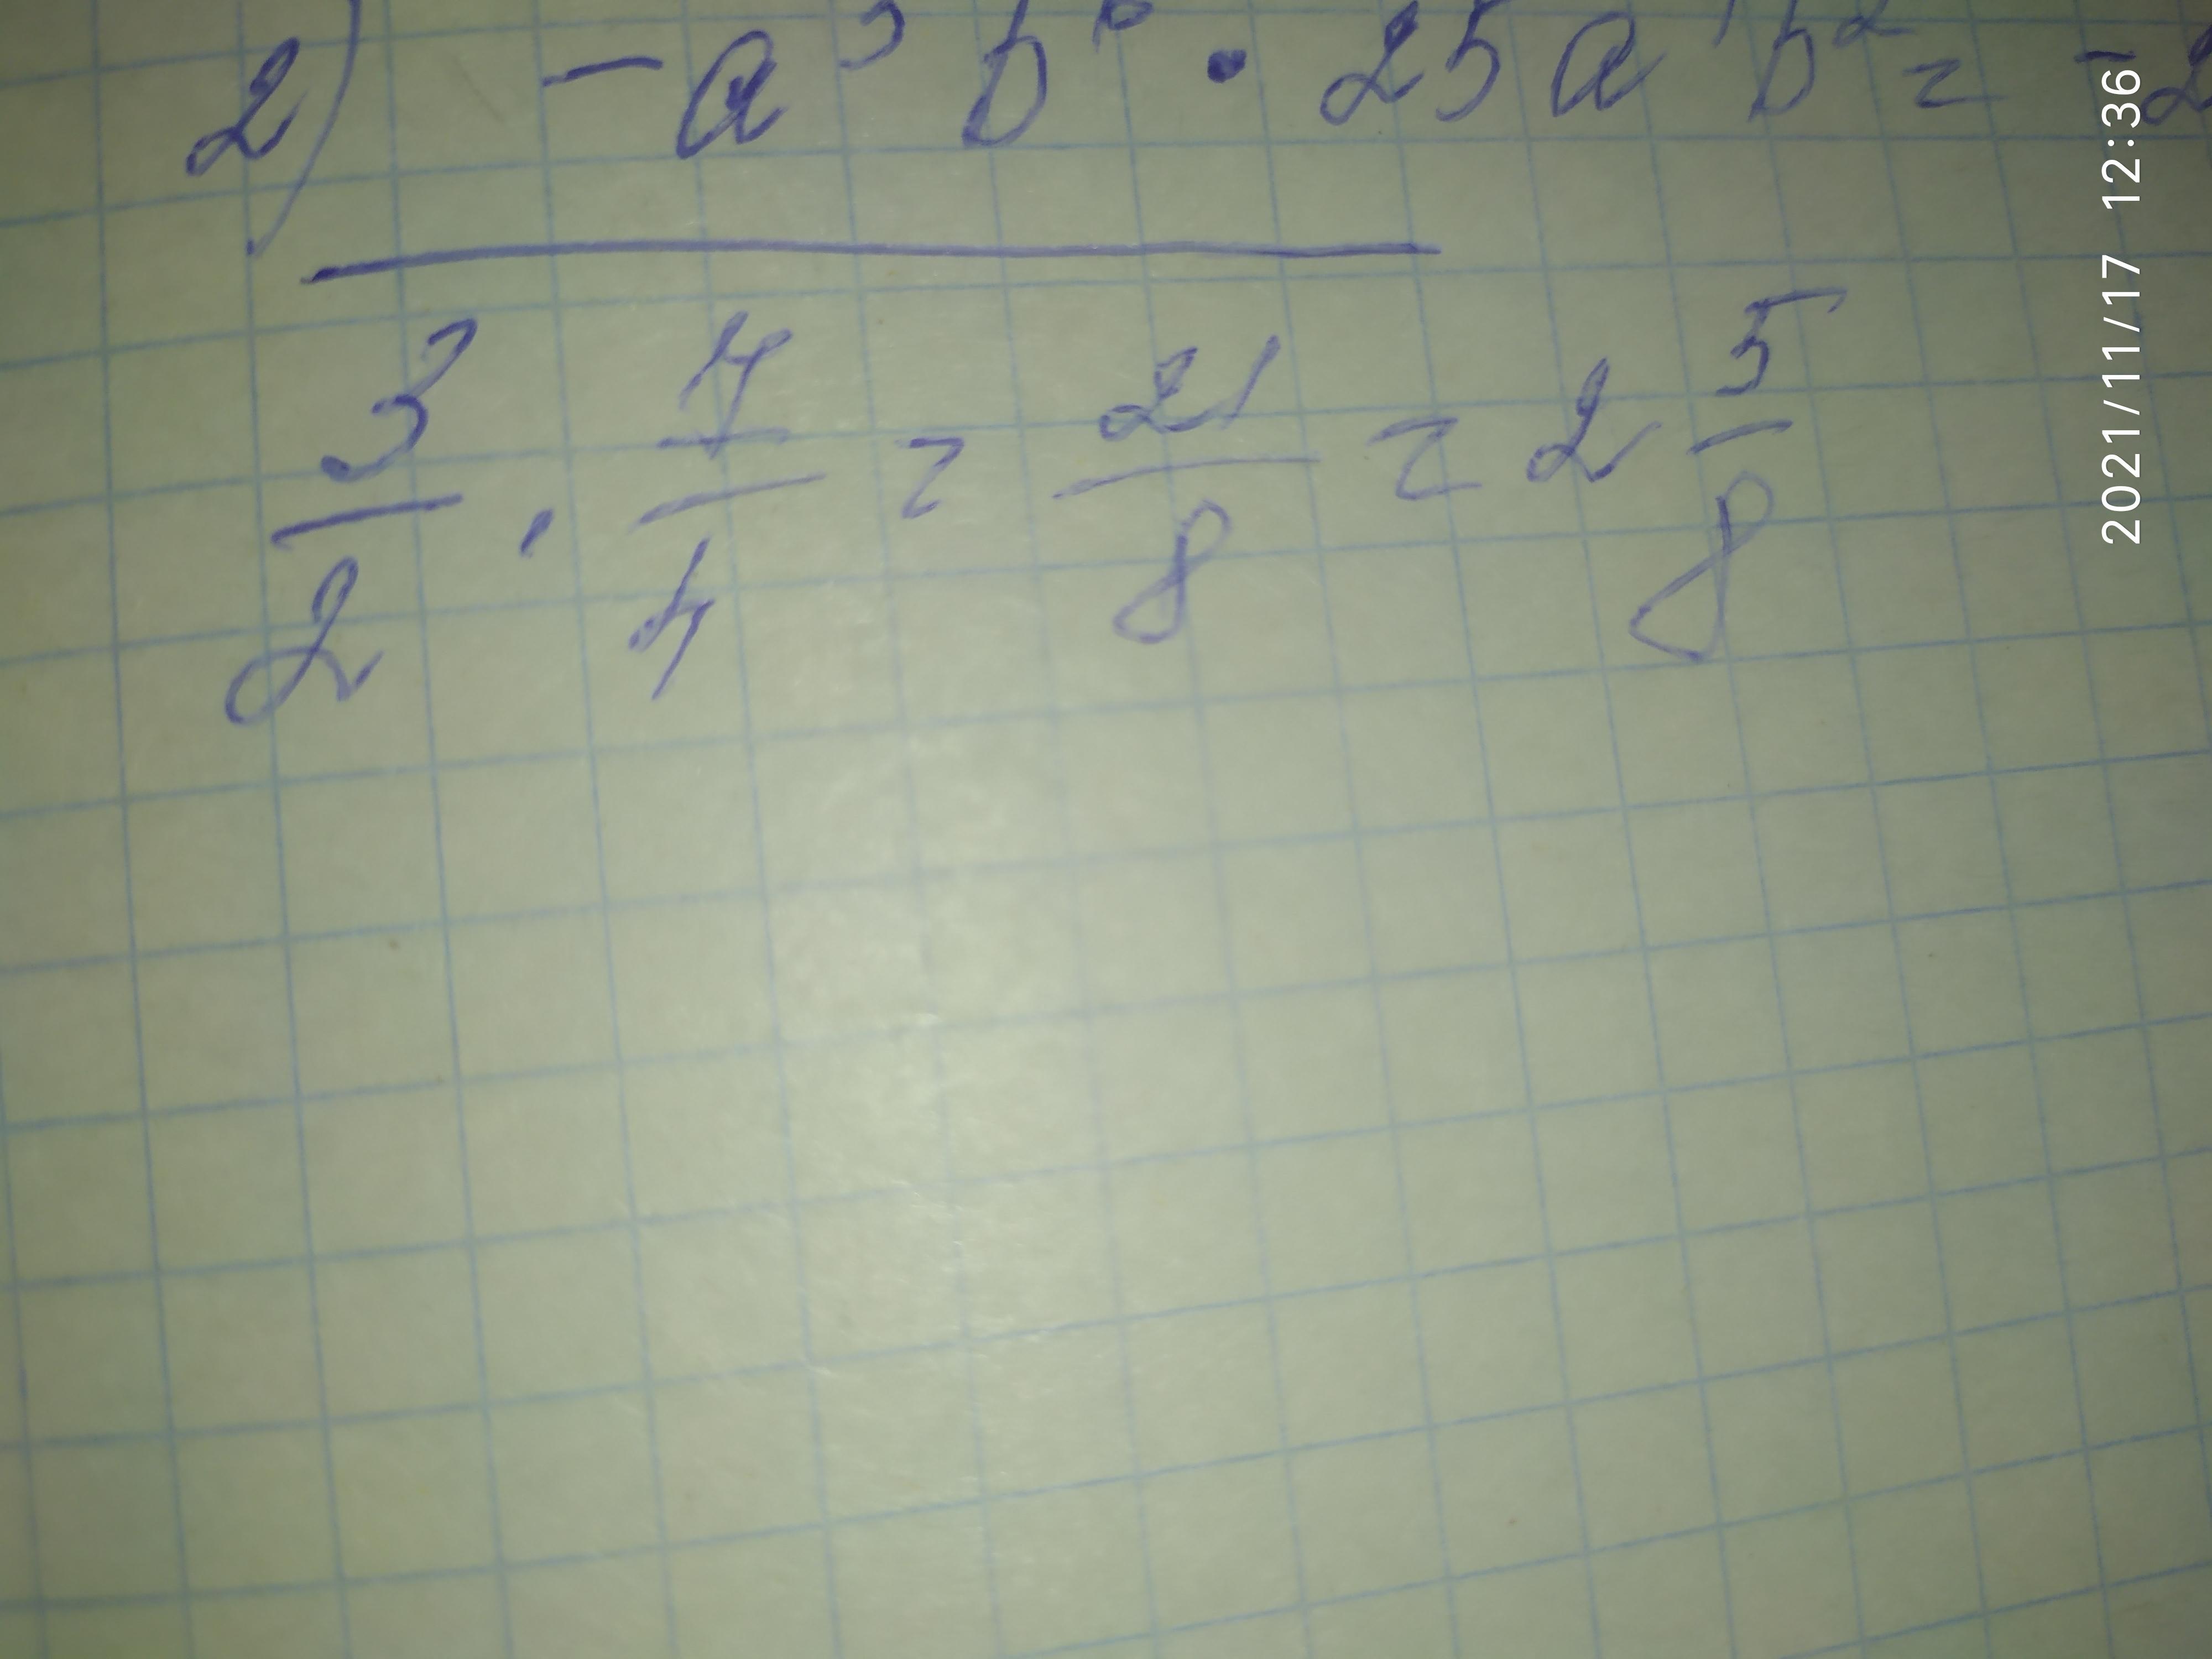 2) -a b · 25a b² = -2
3/2 · 7/4 = 21/8 = 2 5/8
2021/11/17 12:36